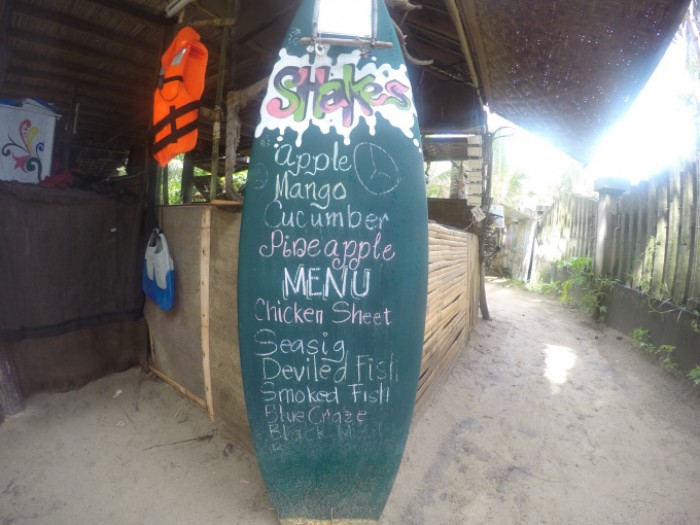 SHakes
Apple
Mango
Cucumber
Pineapple
MENU
Chicken Sheet
Seasig
Deviled Fish
Smoked Fish
Blue Craze
Black